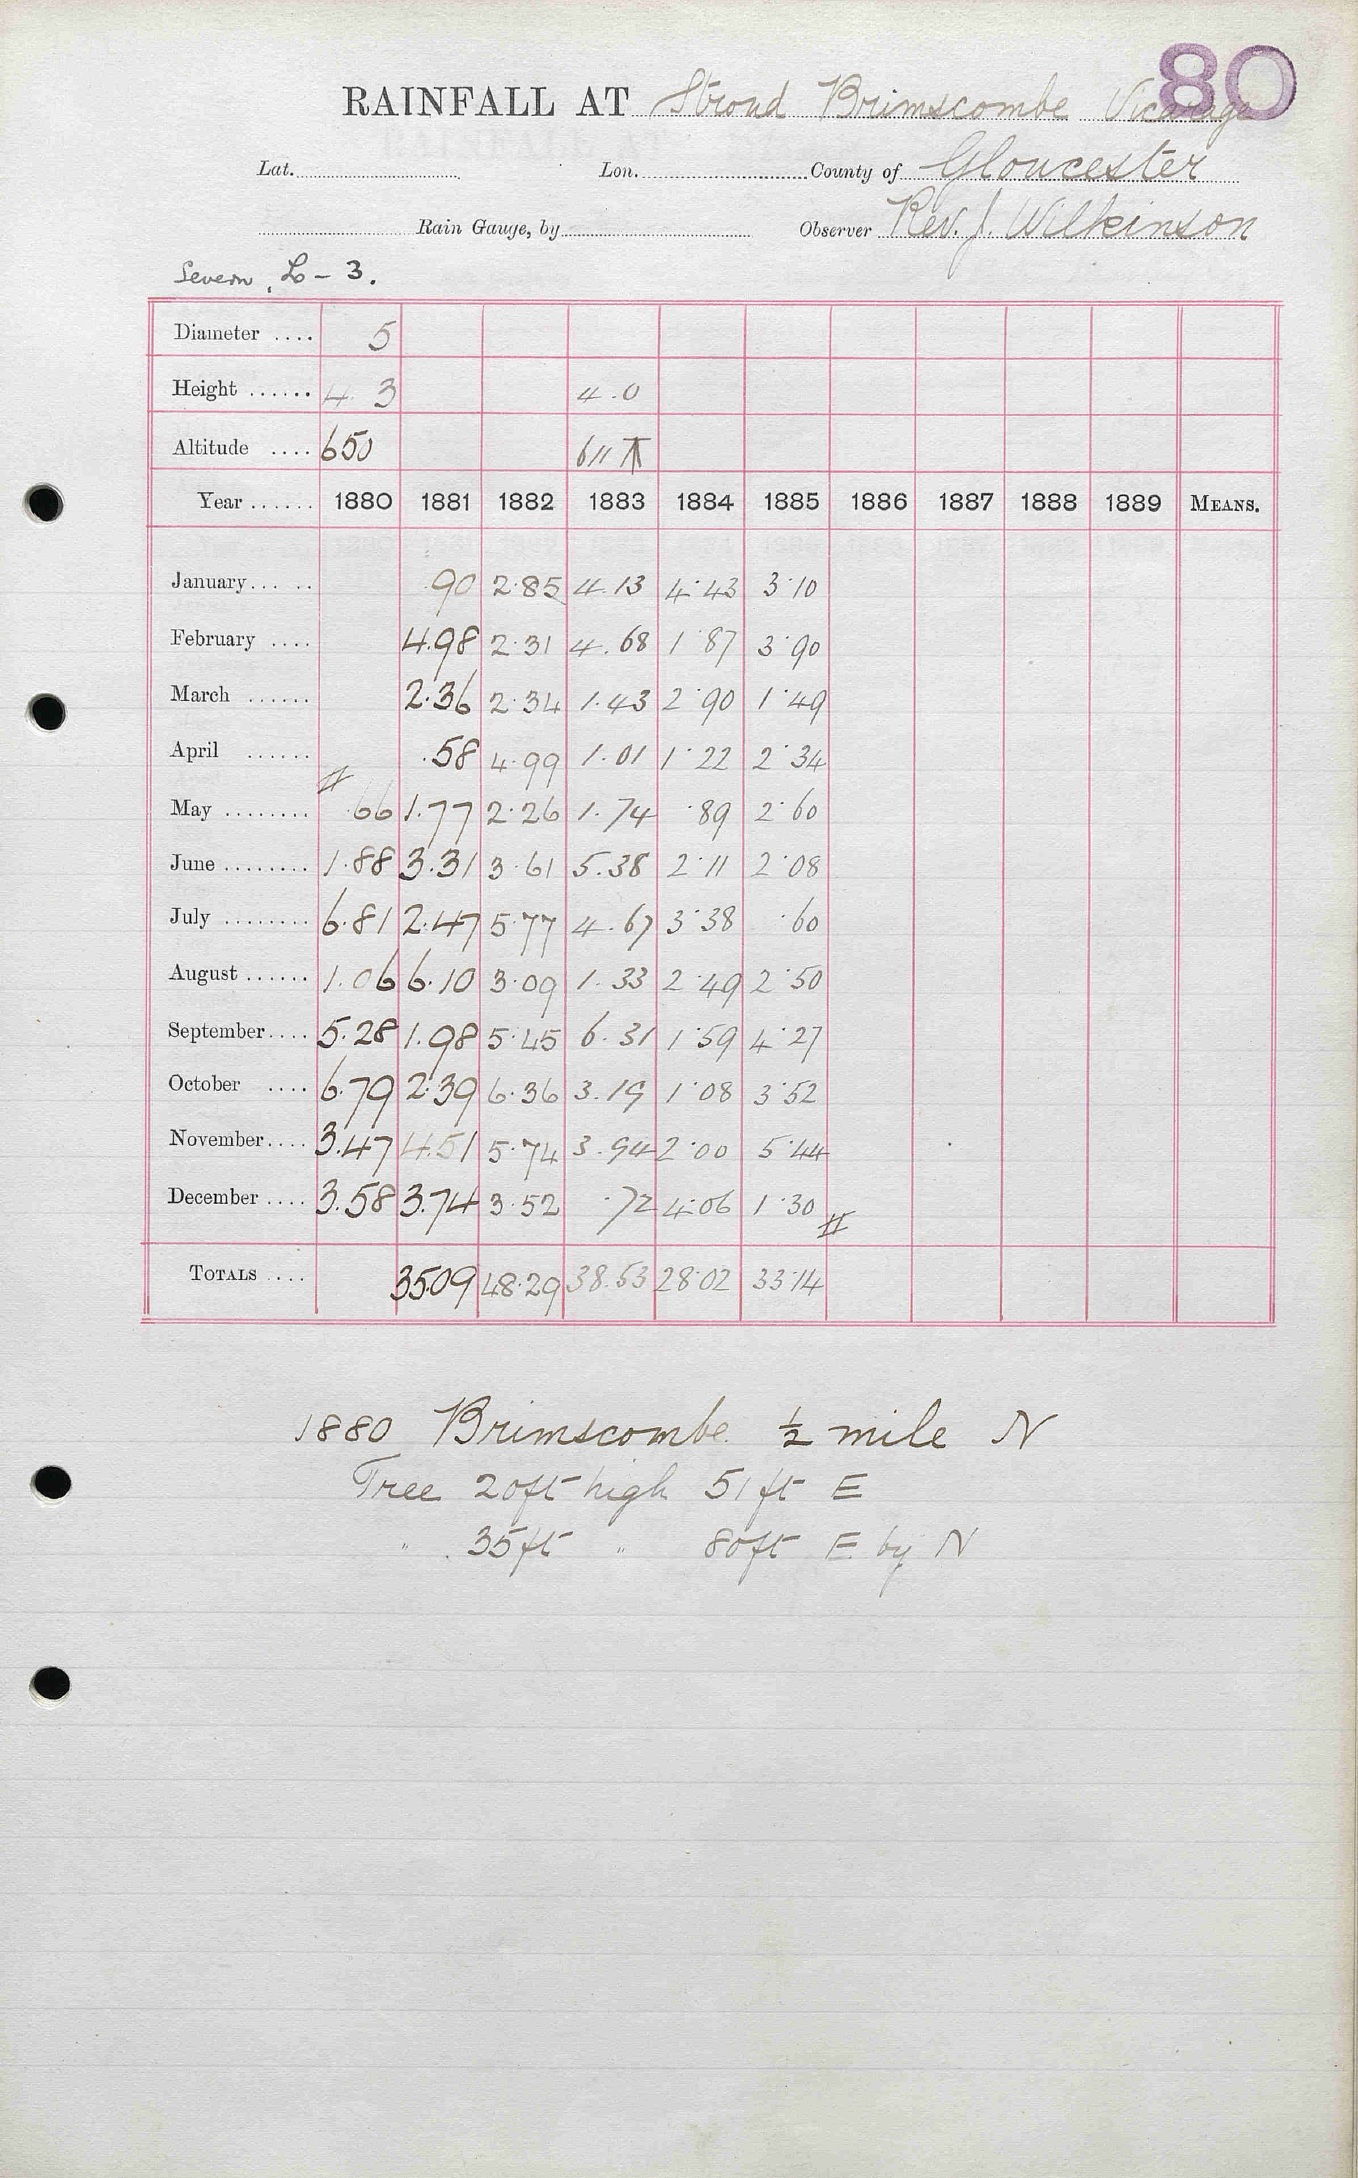 80
RAINFALL AT Stroud Brimscombe Vicarage
Lat. Lon. County of Gloucester
Rain Gauge, by Observer Rev. J. Wilkinson
Severn. L - 3.
Diameter .... 5
Height ...... 4 3 4.0
Altitude .... 650 611
Year ...... 1880 1881 1882 1883 1884 1885 1886 1887 1888 1889 MEANS.
January... .. .90 2.85 4.13 4.43 3.10
February .... 4.98 2.31 4.68 1.87 3.90
March ...... 2.36 2.34 1.43 2.90 1.49
April ...... .58 4.99 1.01 1.22 2.34
May ........ .66 1.77 2.26 1.74 .89 2.60
June ........ 1.88 3.31 3.61 5.38 2.11 2.08
July ........ 6.81 2.47 5.77 4.67 3.38 .60
August ...... 1.06 6.10 3.09 1.33 2.49 2.50
September.... 5.28 1.98 5.45 6.31 1.59 4.27
October .... 6.79 2.39 6.36 3.19 1.08 3.52
November.... 3.47 4.51 5.74 3.94 2.00 5.44
December .... 3.58 3.74 3.52 .72 4.06 1.30
TOTALS .... 35.09 48.29 38.53 28.02 33.14
1880 Brimscombe ½ mile N
Tree 20ft high 51ft E
" 35ft " 80ft E by N